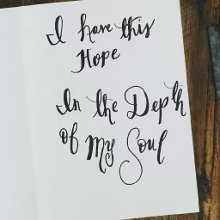 I have this
Hope
In the Depth
of My Soul